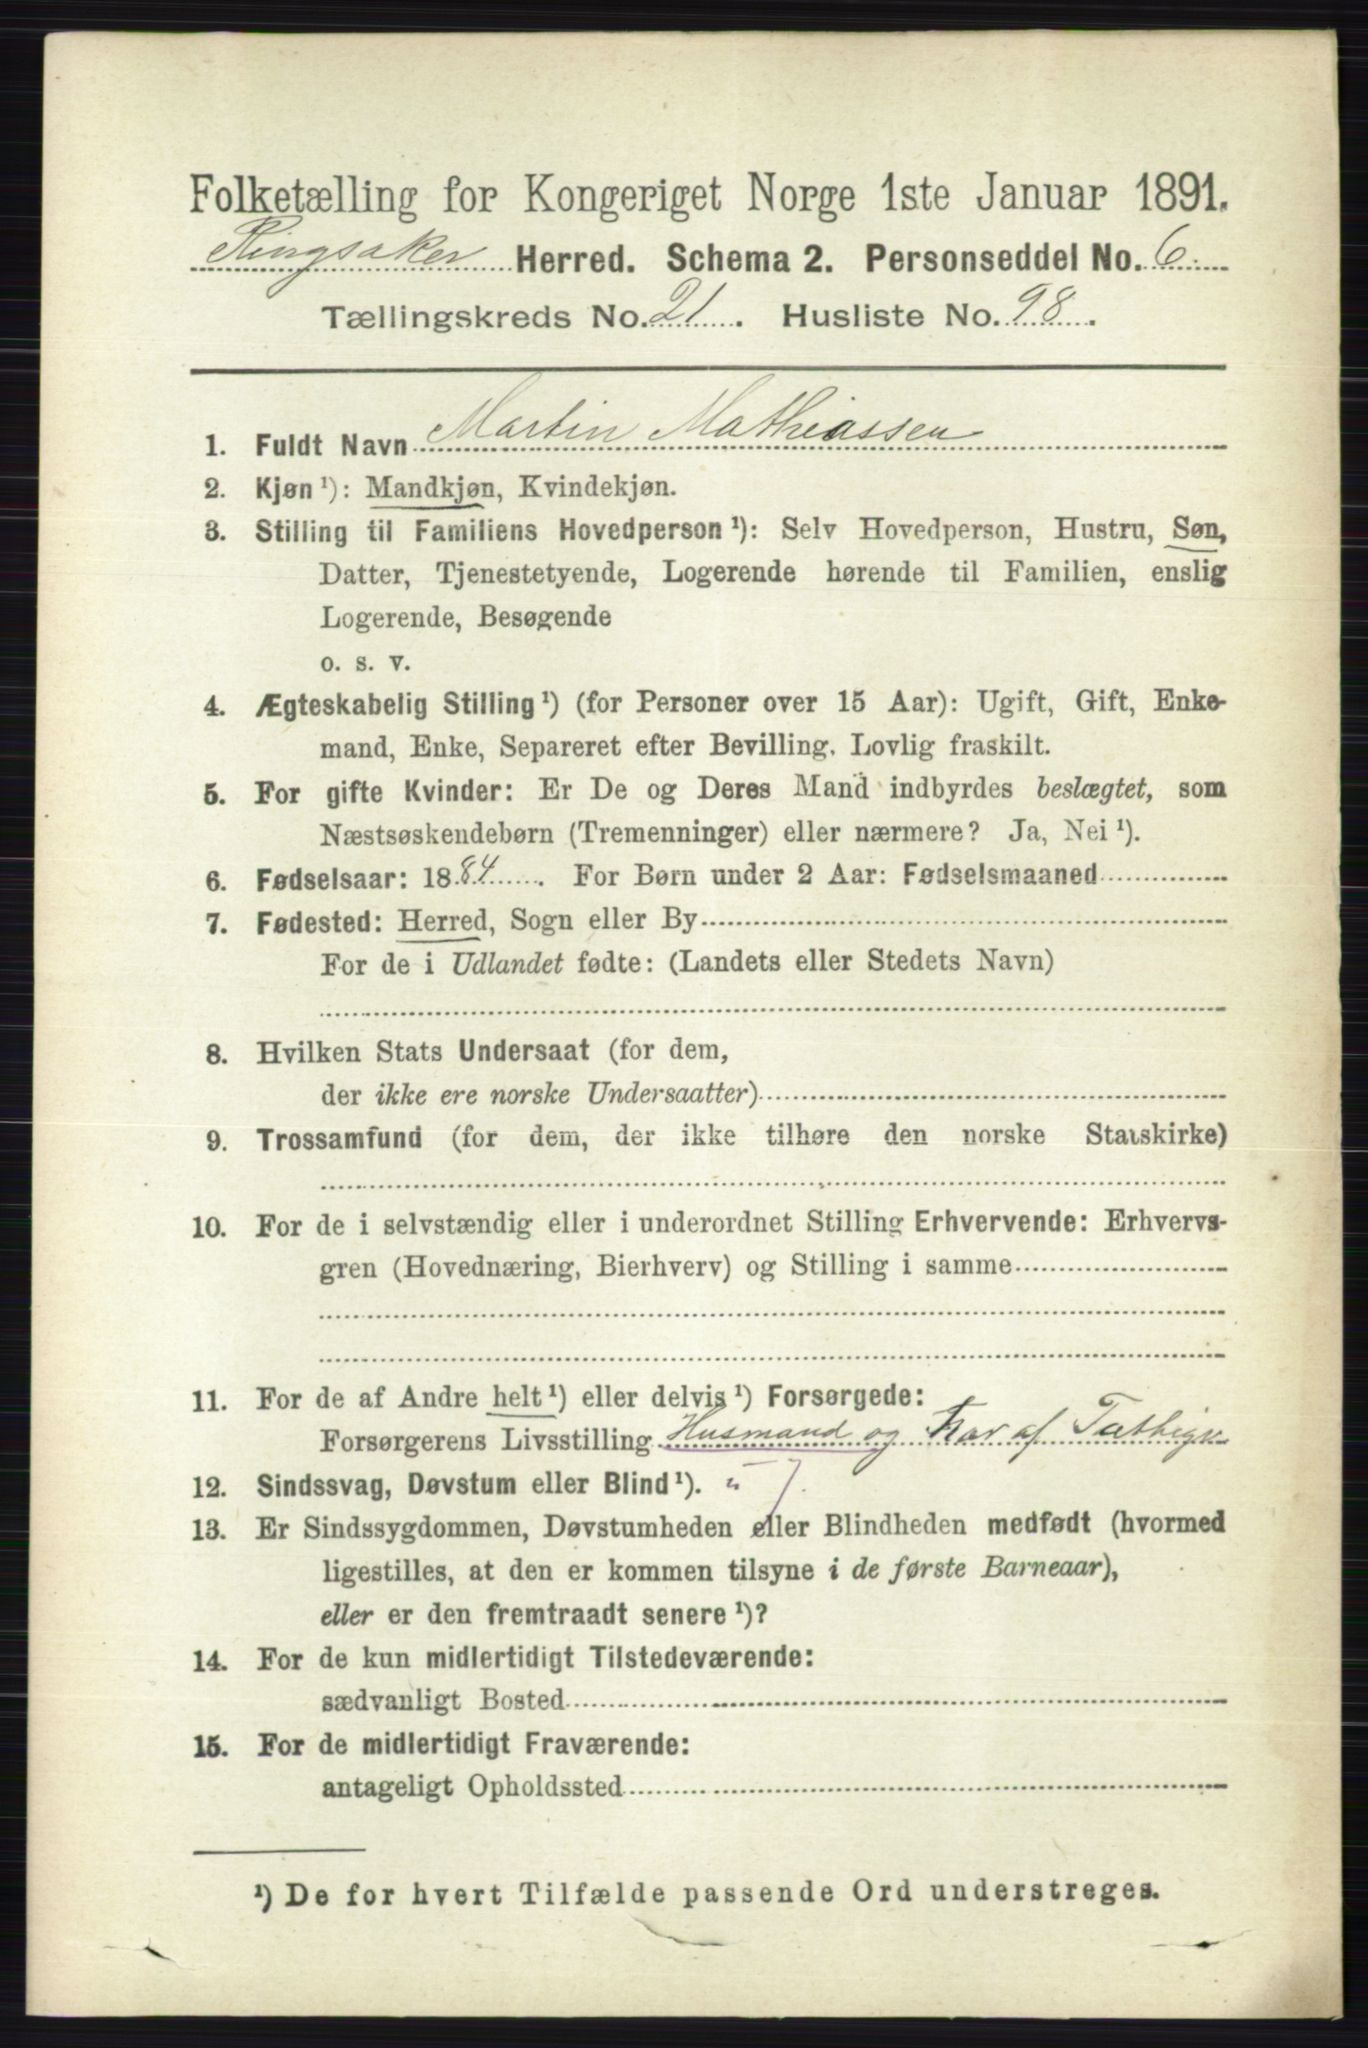 Folketælling for Kongeriget Norge 1ste Januar 1891.
Ringsaker Herred. Schema 2. Personseddel No. 6
Tællingskreds No. 21. Husliste No. 98.
1. Fuldt Navn Martin Mathiassen
2. Kjøn ¹): Mandkjøn, Kvindekjøn.
3. Stilling til Familiens Hovedperson ¹): Selv Hovedperson, Hustru, Søn,
Datter, Tjenestetyende, Logerende hørende til Familien, enslig
Logerende, Besøgende
o. s. v.
4. Ægteskabelig Stilling ¹) (for Personer over 15 Aar): Ugift, Gift, Enke-
mand, Enke, Separeret efter Bevilling. Lovlig fraskilt.
5. For gifte Kvinder: Er De og Deres Mand indbyrdes beslægtet, som
Næstsøskendebørn (Tremenninger) eller nærmere? Ja, Nei ¹).
6. Fødselsaar: 1884. For Børn under 2 Aar: Fødselsmaaned
7. Fødested: Herred, Sogn eller By
For de i Udlandet fødte: (Landets eller Stedets Navn)
8. Hvilken Stats Undersaat (for dem,
der ikke ere norske Undersaatter)
9. Trossamfund (for dem, der ikke tilhøre den norske Statskirke)
10. For de i selvstændig eller i underordnet Stilling Erhvervende: Erhvervs-
gren (Hovednæring, Bierhverv) og Stilling i samme
11. For de af Andre helt ¹) eller delvis ¹) Forsørgede:
Forsørgerens Livsstilling Husmand og har af
12. Sindssvag, Døvstum eller Blind ¹).
13. Er Sindssygdommen, Døvstumheden eller Blindheden medfødt (hvormed
ligestilles, at den er kommen tilsyne i de første Barneaar),
eller er den fremtraadt senere ¹)?
14. For de kun midlertidigt Tilstedeværende:
sædvanligt Bosted
15. For de midlertidigt Fraværende:
antageligt Opholdssted
¹) De for hvert Tilfælde passende Ord understreges.